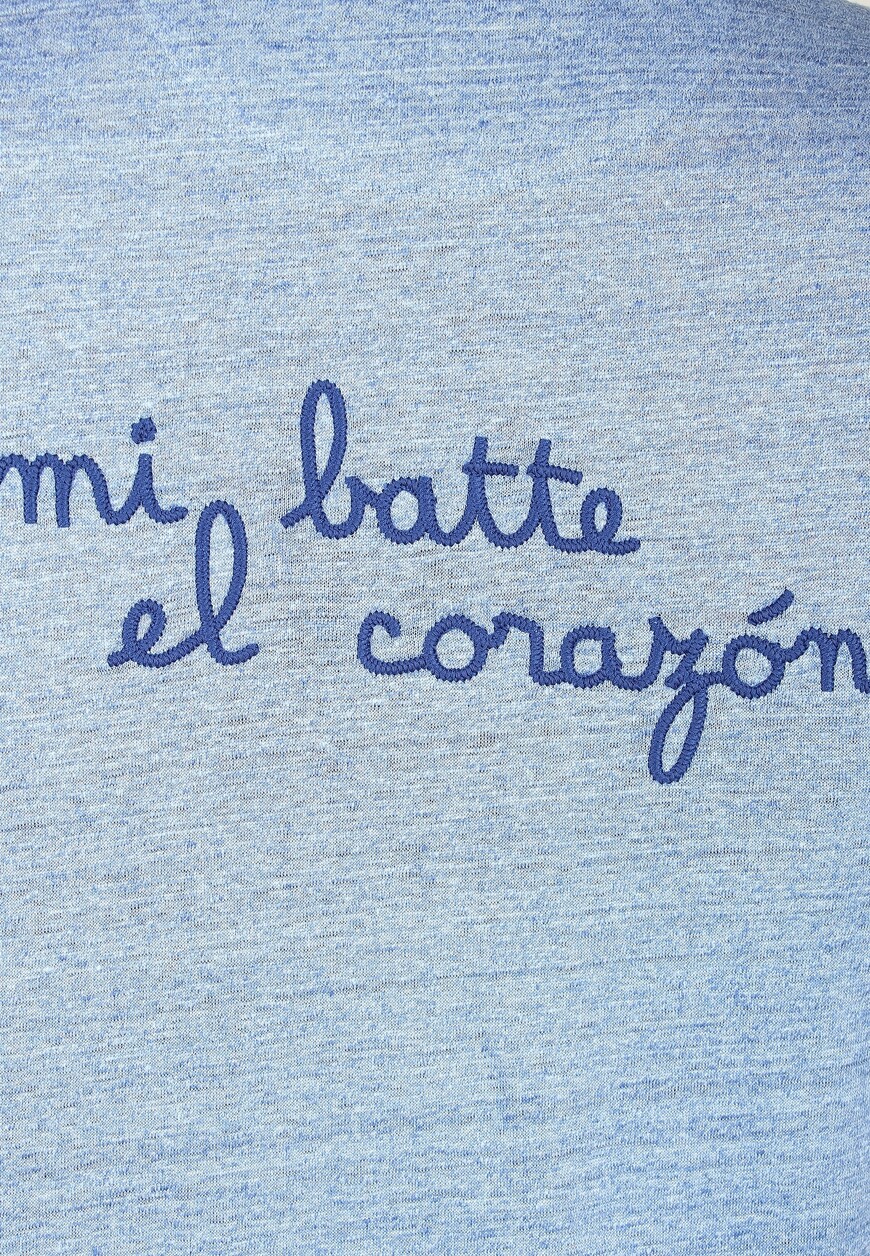 mi batte
el corazón